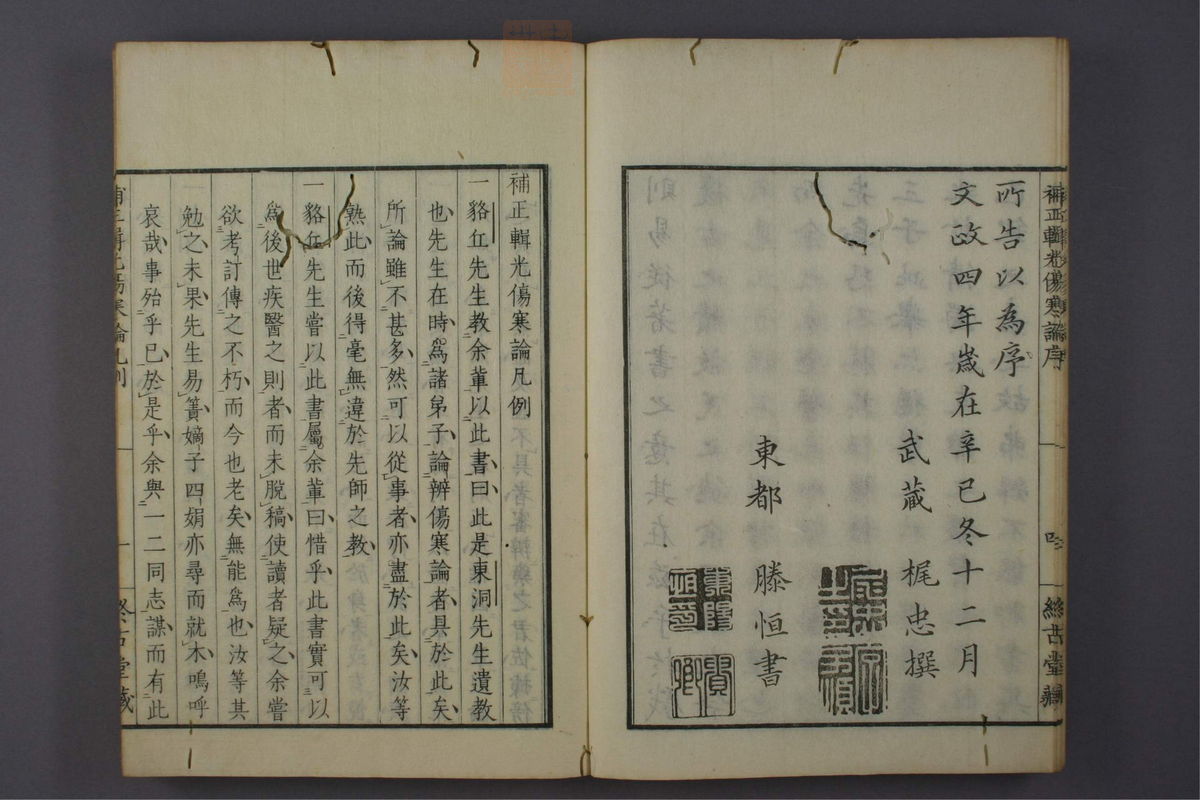 補正輯光傷寒論序
四
終古堂藏
所告以為序
文政四年歲在辛巳冬十二月
武藏 梶忠撰
東都 滕恒書
補正輯光傷寒論凡例
一貉丘先生教余輩以此書曰此是東洞先生遺教
也先生在時爲諸弟子論辨傷寒論者具於此矣
所論雖不甚多然可以從事者亦盡於此矣汝等
熟此而後得毫無違於先師之教
一貉丘先生嘗以此書屬余輩曰惜乎此書實可以
爲後世疾醫之則者而未脫稿使讀者疑之余嘗
欲考訂傳之不朽而今也老矣無能爲也汝等其
勉之未果先生易簀嫡子四娟亦尋而就木嗚呼
哀哉事殆乎已於是乎余與一二同志謀而有此
補正輯光傷寒論凡例
一
終古堂藏